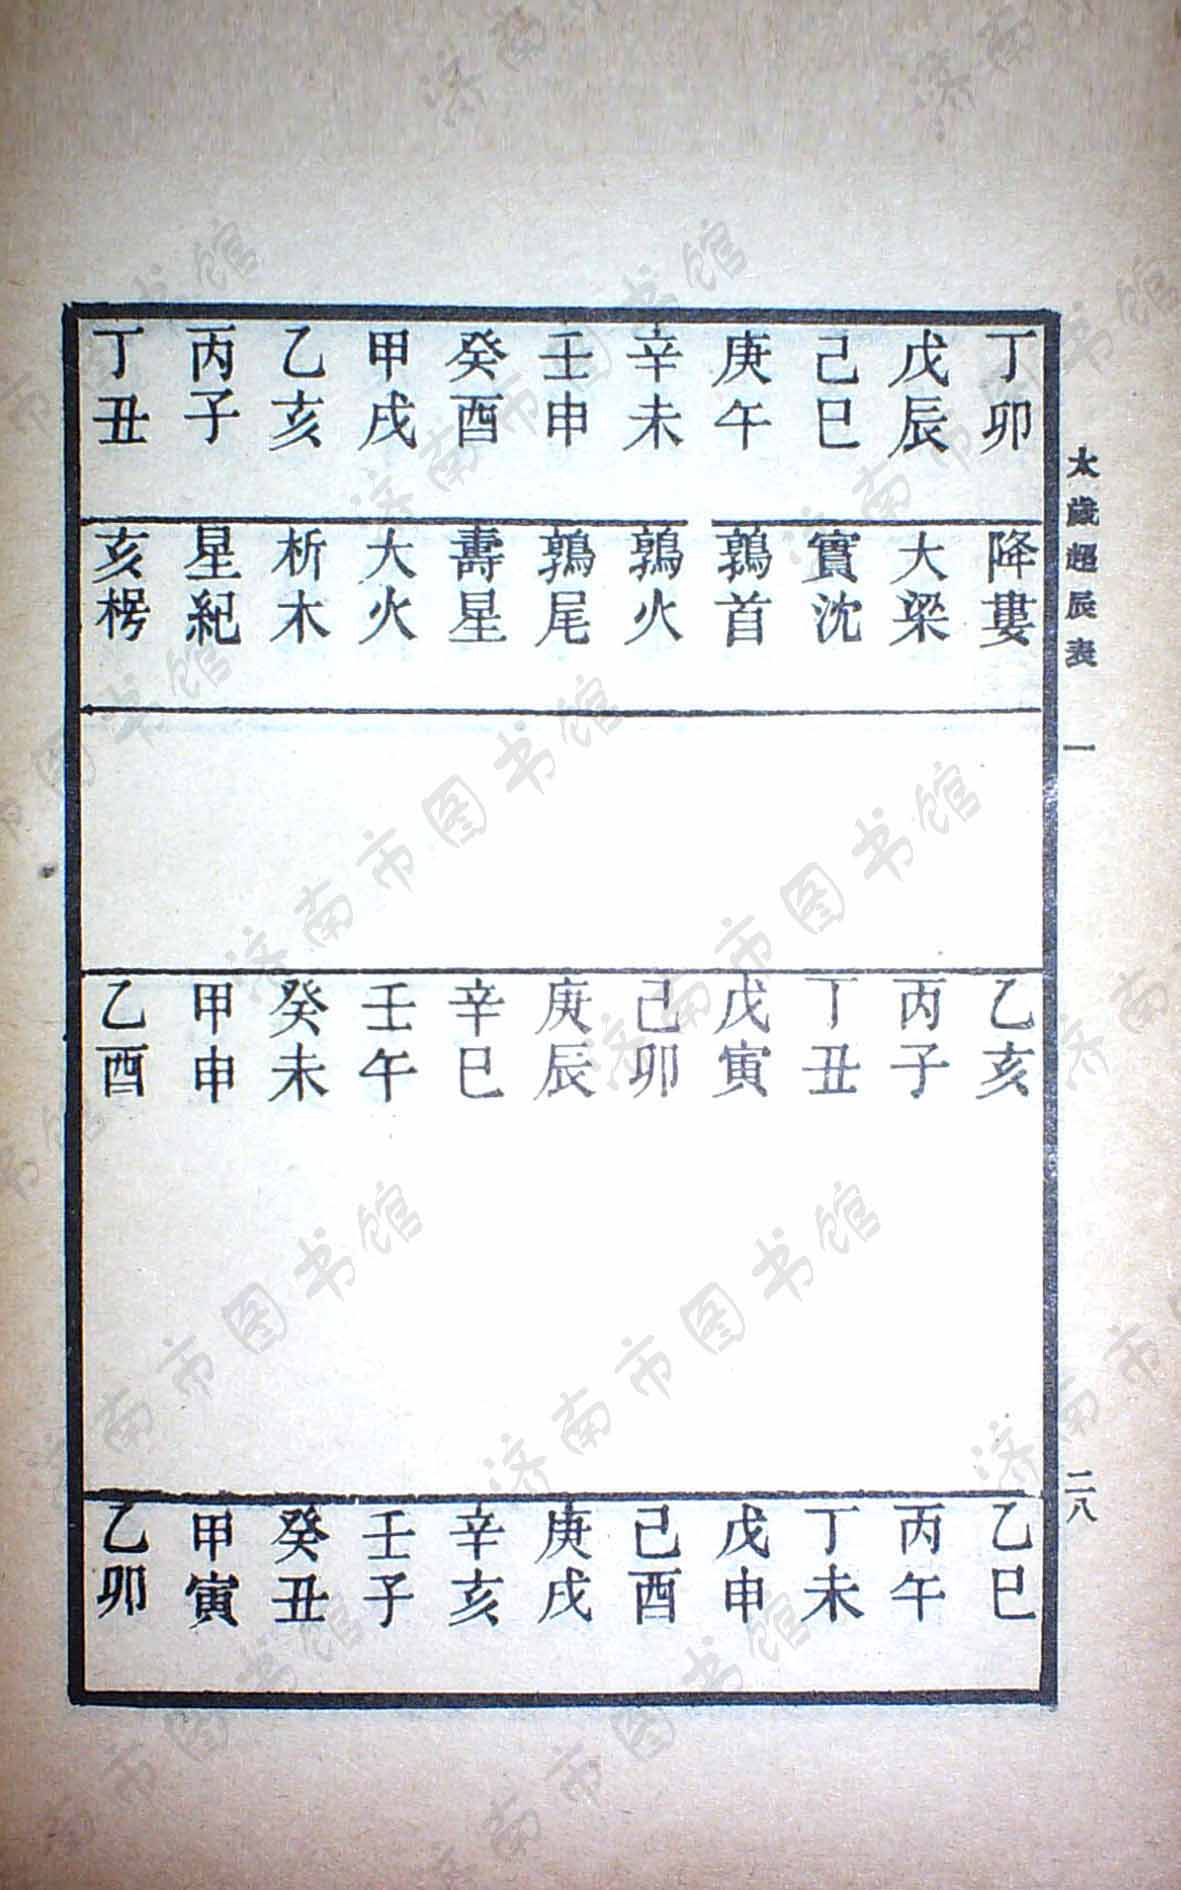 太歲超辰表 一 二八
丁卯 降婁 乙亥 乙巳
戊辰 大梁 丙子 丙午
己巳 實沈 丁丑 丁未
庚午 鶉首 戊寅 戊申
辛未 鶉火 己卯 己酉
壬申 鶉尾 庚辰 庚戌
癸酉 壽星 辛巳 辛亥
甲戌 大火 壬午 壬子
乙亥 析木 癸未 癸丑
丙子 星紀 甲申 甲寅
丁丑 亥枵 乙酉 乙卯
济南市图书馆